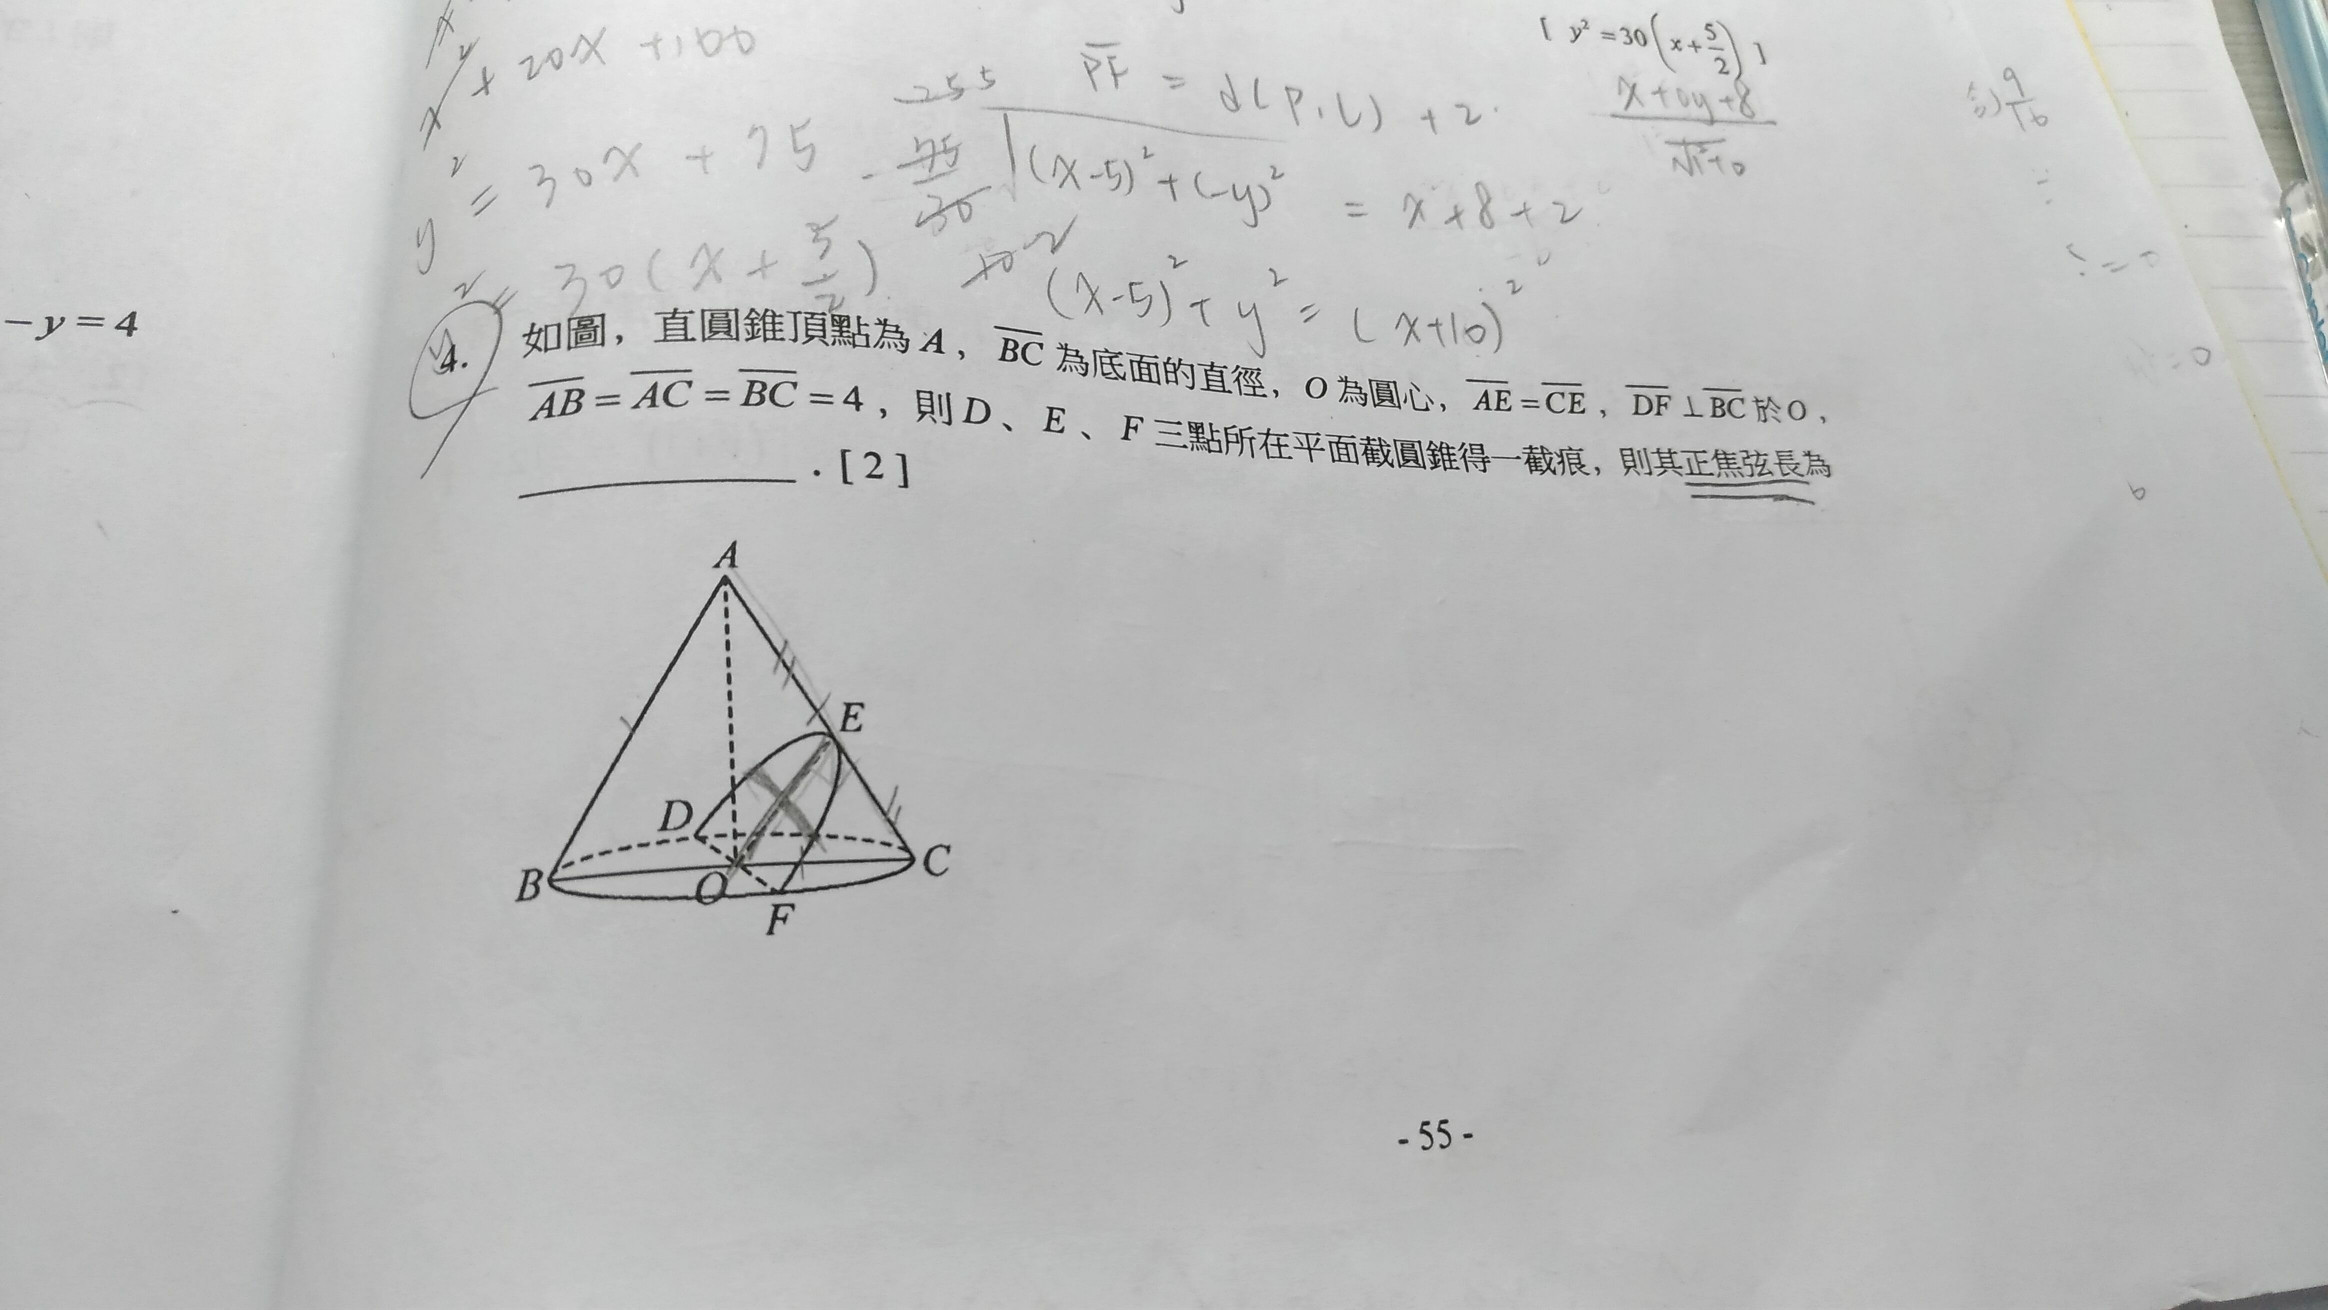 x² + 20x + 100
[ y² = 30(x + 5/2) ]
PF = d(P, L) + 2
x + 0y + 8
√1² + 0
9/16
y² = 30x + 75
√(x-5)² + (-y)² = x + 8 + 2
= 30(x + 5/2)
(x-5)² + y² = (x+10)²
-y = 4
4. 如圖，直圓錐頂點為 A，BC 為底面的直徑，O 為圓心，AE = CE，DF ⊥ BC 於 O，
AB = AC = BC = 4，則 D、E、F 三點所在平面截圓錐得一截痕，則其正焦弦長為
. [ 2 ]
A
E
D
B
O
C
F
- 55 -